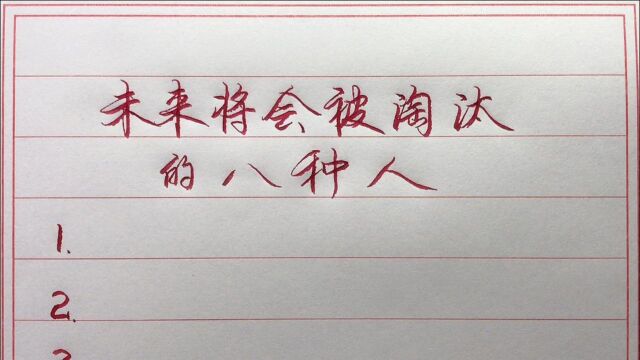 未来将会被淘汰
的八种人
1.
2.